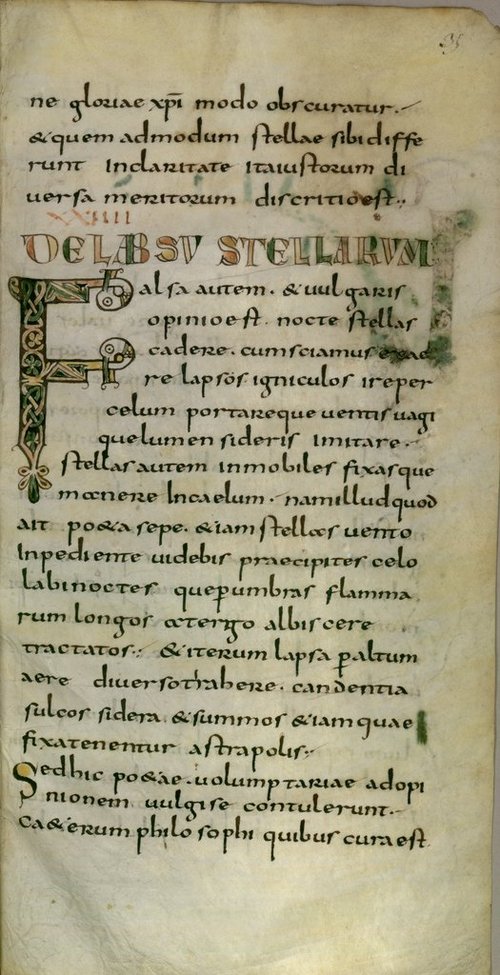 ne gloriae xpi modo obscuratur.
& quem admodum stellae sibi diffe
runt In claritate ita iustorum di
versa meritorum discritio est.
XXIIII
DE LABSU STELLARUM
Falsa autem. & vulgaris
opinio est. nocte stellas
cadere. cum sciamus
re lapsos igniculos ire per
celum portareque ventis vagi
que lumen sideris Imitare.
stellas autem Inmobiles fixasque
manere In caelum. nam illud quod
ait po&a sepe. & iam stellas vento
Inpediente videbis praecipites celo
labi noctes que p umbras flamma
rum longos a tergo albiscere
tractatos: & iterum lapsa p altum
aere diverso trahere. candentia
sulcos sidera. & summos &iam quae
fixa tenentur astra polis:
Sed hic po&ae. volumptariae ad opi
nionem vulgi se contulerunt.
Ca&erum philosophi quibus cura est